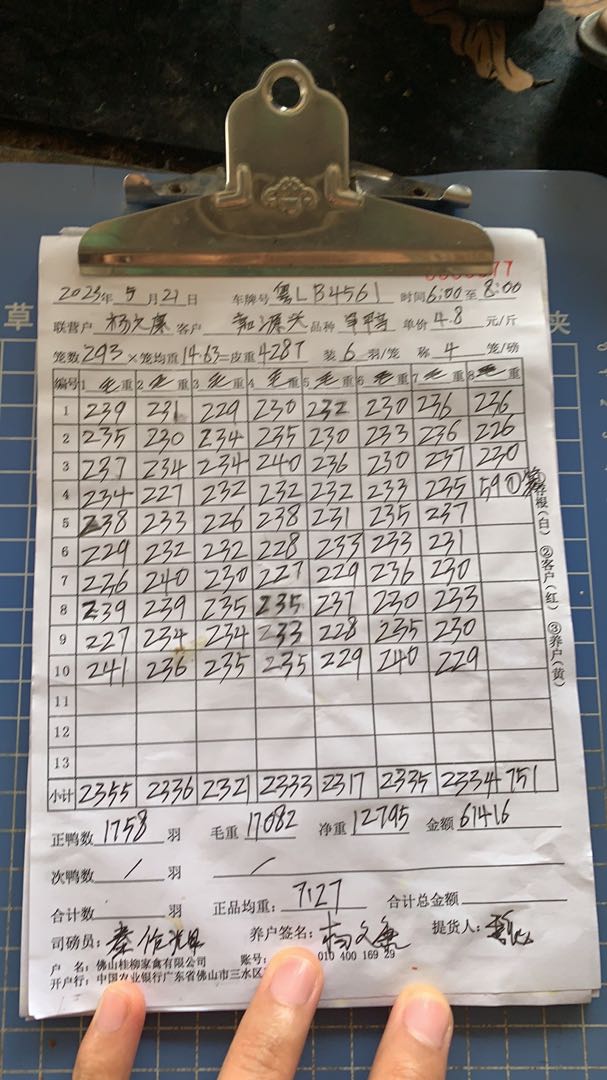 77
2023年 5月21日 车牌号 粤LB4561 时间6:00至8:00
联营户 杨文廉 客户 源兴 品种 单价4.8元/斤
笼数293×笼均重14.63=皮重4287 装6羽/笼 称4笼/磅
编号 1毛重 2毛重 3毛重 4毛重 5毛重 6毛重 7毛重 8毛重
1 239 231 229 230 232 230 236 236
2 235 230 234 235 230 233 236 226
3 237 234 234 240 236 230 237 230
4 234 227 232 232 232 233 235 59①笼
5 238 233 226 238 231 235 237
6 229 232 232 228 233 233 231
7 236 240 230 227 229 236 230
8 239 239 235 235 237 230 233
9 227 234 234 233 228 235 230
10 241 236 235 235 229 240 229
11
12
13
小计 2355 2336 2321 2333 2317 2335 2334 751
正鸭数1758羽 毛重17082 净重12795 金额61416
次鸭数/羽 /
合计数 羽 正品均重:7.27 合计总金额
司磅员: 养户签名:杨文廉 提货人:
户 名:佛山桂柳家禽有限公司 账号: 010 400 169 29
开户行:中国农业银行广东省佛山市三水区
草
夹
存根(白)
②客户(红)
③养户(黄)